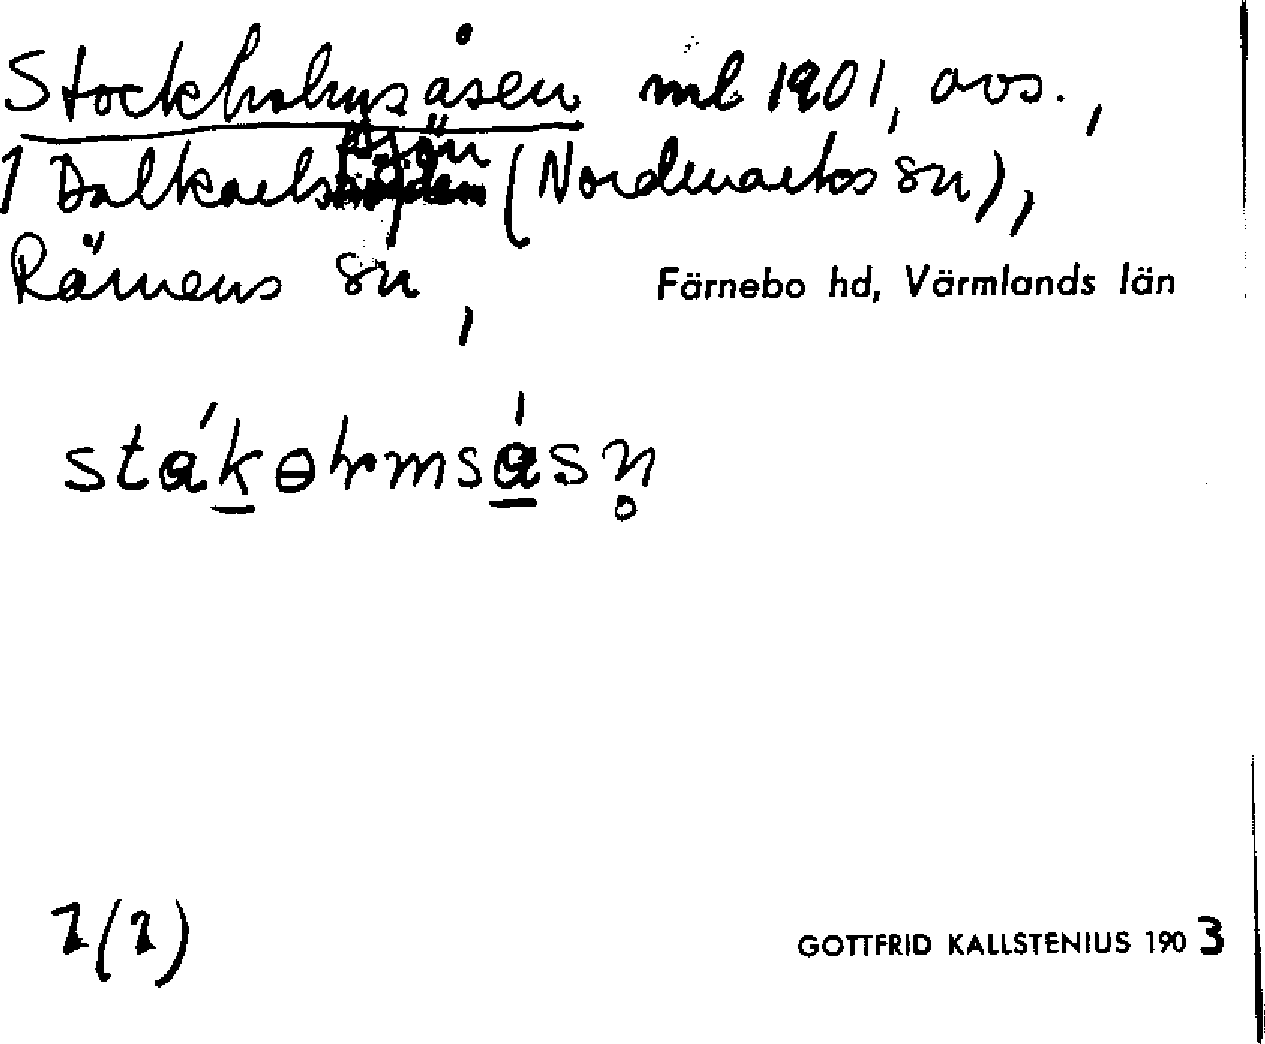 Stockholmsåsen ml 1901, avs.,
1 Dalkarlssjön (Nordmarks sn),
Rämens sn, Färnebo hd, Värmlands län
GOTTFRID KALLSTENIUS 1903